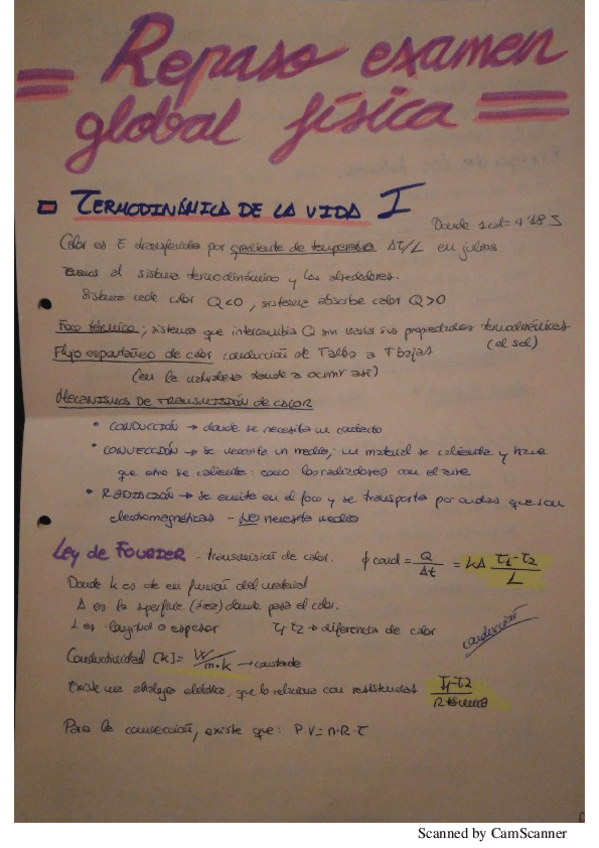 Repaso examen
global física
TERMODINÁMICA DE LA VIDA I
Donde 1 cal = 4'18 J
Calor es E transferida por gradiente de temperatura ΔT/L en julios
al sistema termodinámico y los alrededores.
Sistema cede calor Q<0, sistema absorbe calor Q>0
Foco térmico; sistema que intercambia Q sin variar sus propiedades termodinámicas
(el sol)
Flujo espontáneo de calor conducción de T altas a T bajas
(en la naturaleza tiende a ocurrir así)
MECANISMOS DE TRANSMISIÓN DE CALOR
• CONDUCCIÓN → donde se necesita un contacto
• CONVECCIÓN → se necesita un medio; un material se calienta y hace
que otro se caliente: como los radiadores con el aire
• RADIACIÓN → se emite en el foco y se transporta por ondas que son
electromagnéticas - NO necesita medio
Ley de FOURIER - transmisión de calor. ϕ cond = Q/Δt = kA T1-T2/L
Donde k es de en función del material
A es la superficie (área) donde pasa el calor.
L es longitud o espesor T1-T2 → diferencia de calor
conducción
Conductividad [k] = W/m·k → constante
Existe una analogía eléctrica, que lo relaciona con resistencias T1-T2/R
Para la convección, existe que: P·V=n·R·T
Scanned by CamScanner